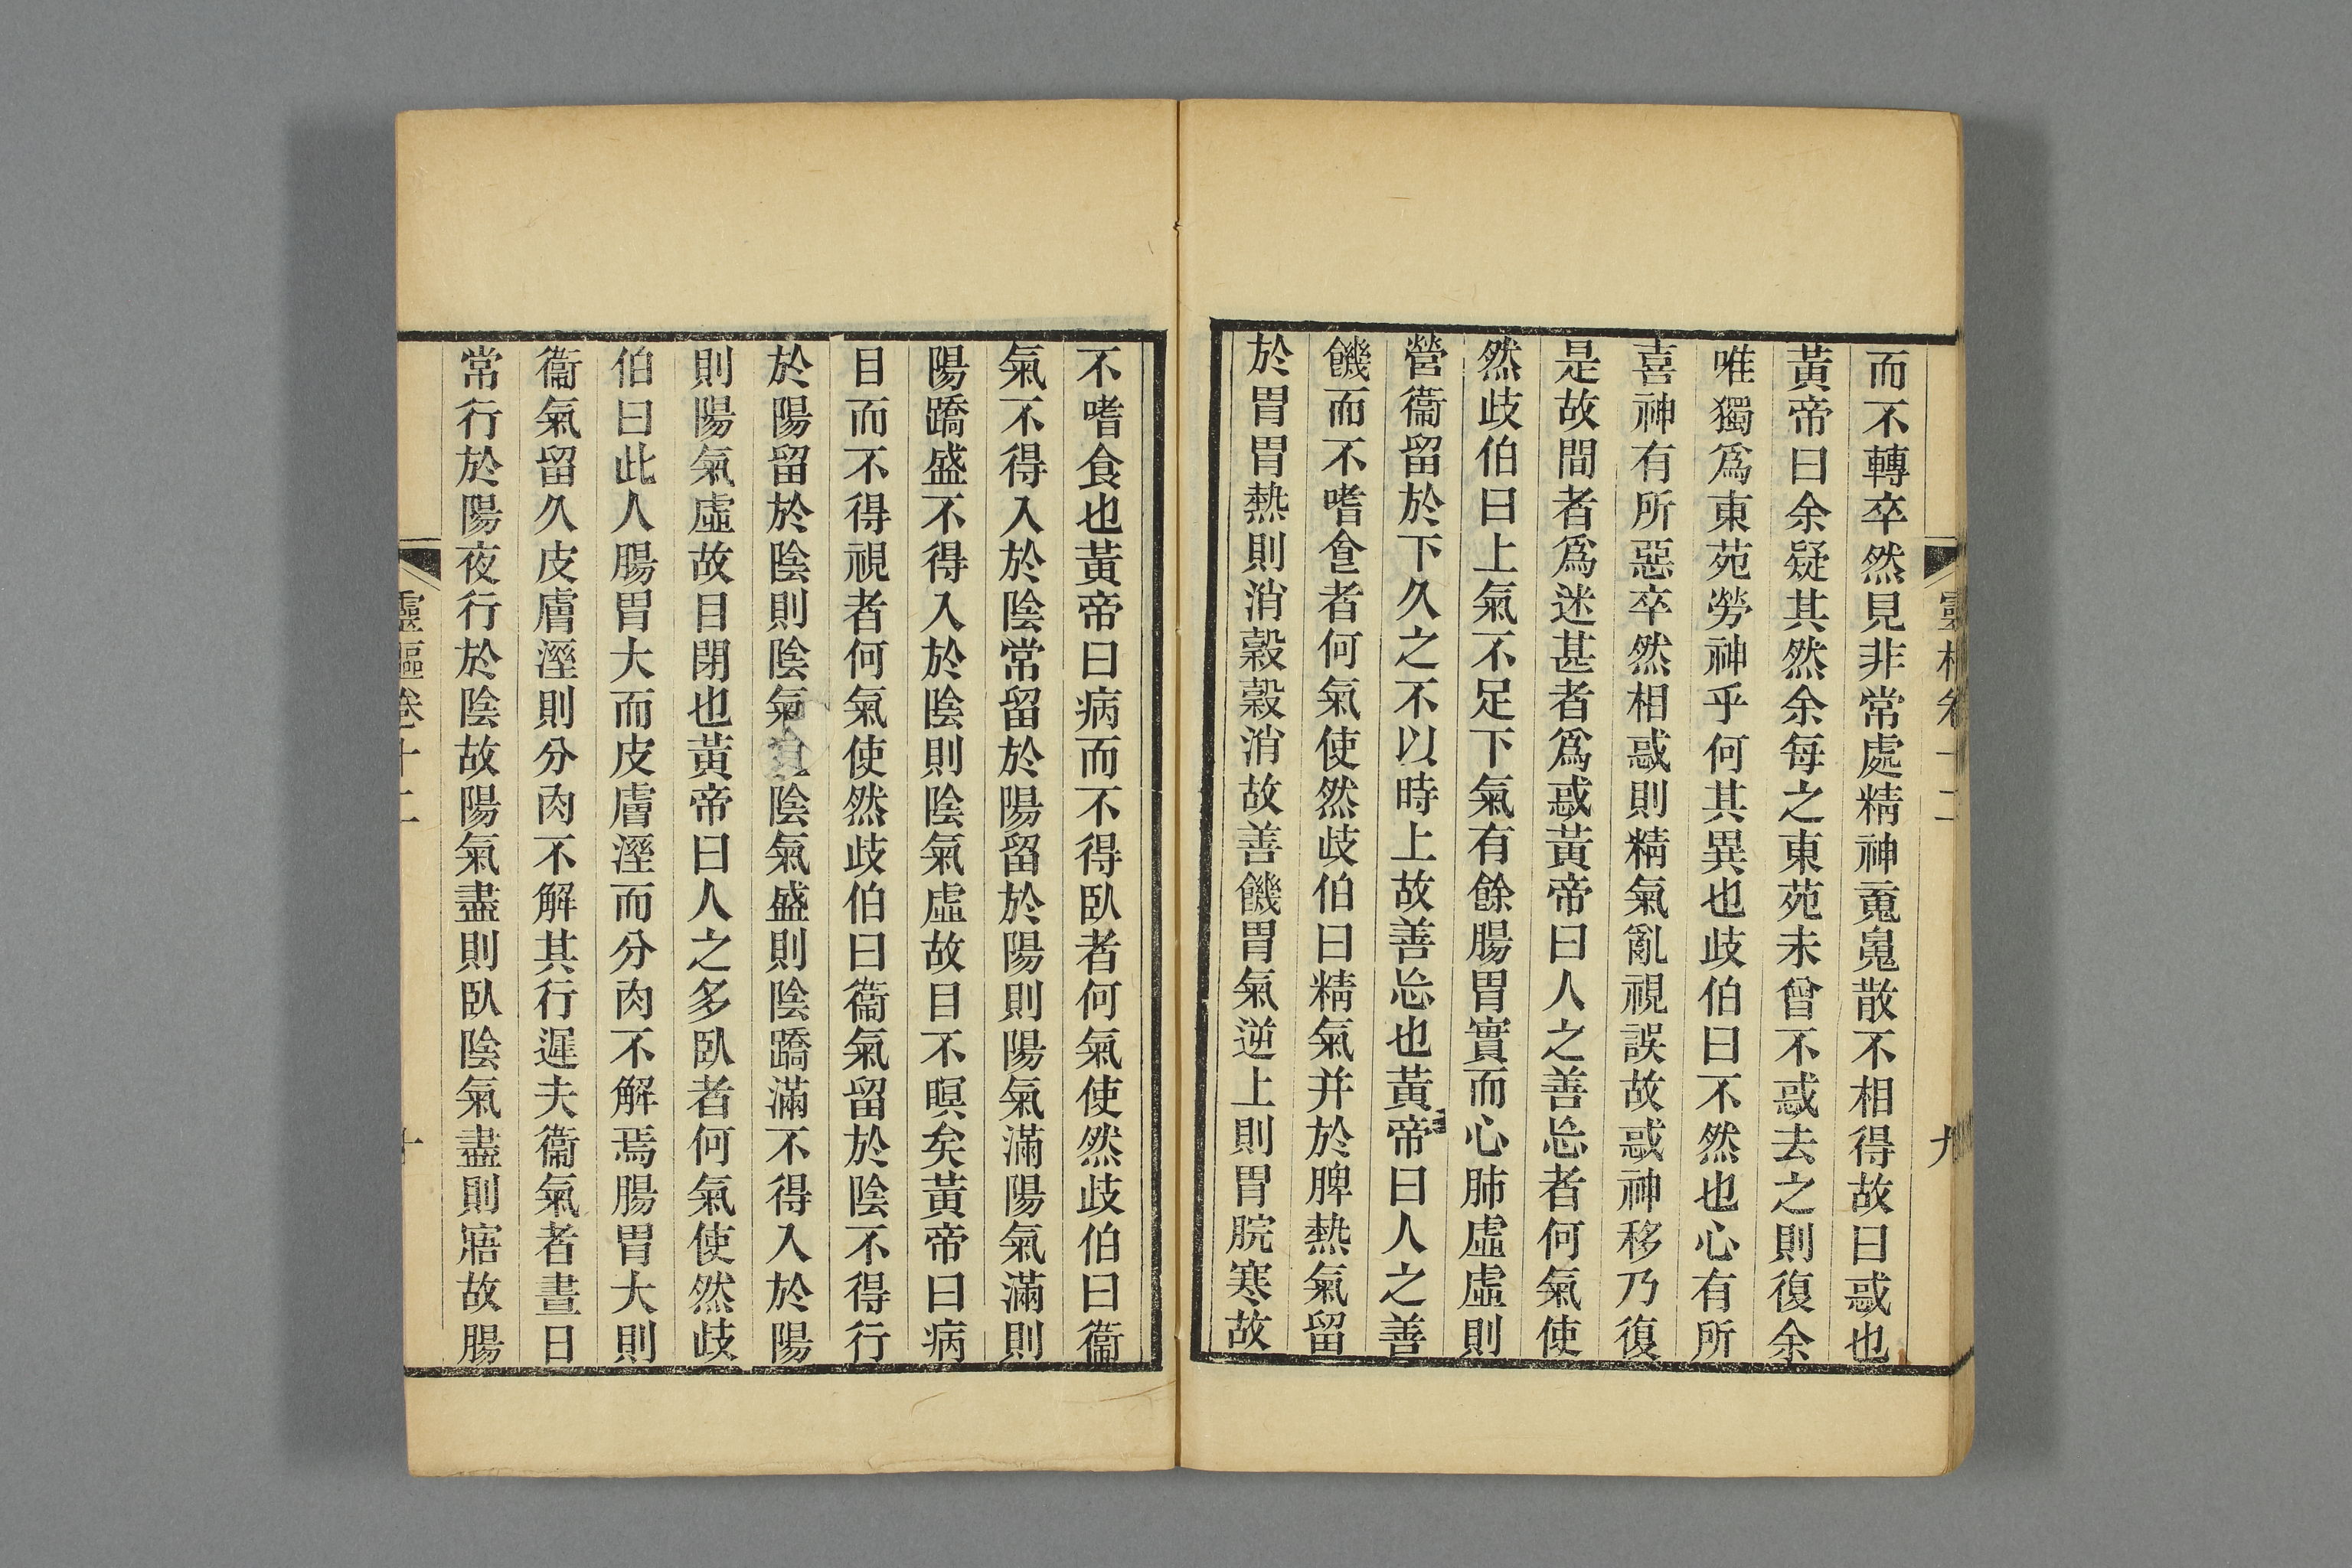 靈樞卷十二
九
而不轉卒然見非常處精神䰟鬼散不相得故曰惑也
黃帝曰余疑其然余每之東苑未曾不惑去之則復余
唯獨爲東苑勞神乎何其異也歧伯曰不然也心有所
喜神有所惡卒然相惑則精氣亂視誤故惑神移乃復
是故間者爲迷甚者爲惑黃帝曰人之善忘者何氣使
然歧伯曰上氣不足下氣有餘腸胃實而心肺虛虛則
營衞留於下久之不以時上故善忘也黃帝曰人之善
饑而不嗜食者何氣使然歧伯曰精氣并於脾熱氣留
於胃胃熱則消穀穀消故善饑胃氣逆上則胃脘寒故
不嗜食也黃帝曰病而不得臥者何氣使然歧伯曰衞
氣不得入於陰常留於陽留於陽則陽氣滿陽氣滿則
陽蹻盛不得入於陰則陰氣虛故目不瞑矣黃帝曰病
目而不得視者何氣使然歧伯曰衞氣留於陰不得行
於陽留於陰則陰氣陰氣盛則陰蹻滿不得入於陽
則陽氣虛故目閉也黃帝曰人之多臥者何氣使然歧
伯曰此人腸胃大而皮膚溼而分肉不解焉腸胃大則
衞氣留久皮膚溼則分肉不解其行遲夫衞氣者晝日
常行於陽夜行於陰故陽氣盡則臥陰氣盡則寤故腸
靈樞卷十二
十